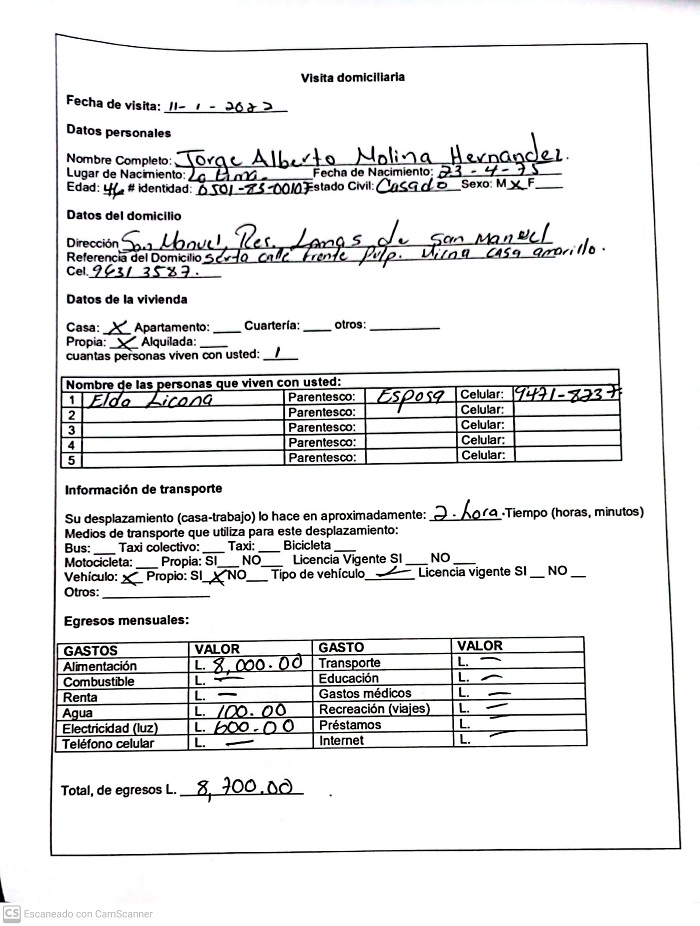 Visita domiciliaria
Fecha de visita: 11-1-2022
Datos personales
Nombre Completo: Jorge Alberto Molina Hernandez.
Lugar de Nacimiento: La Lima. Fecha de Nacimiento: 23-4-75
Edad: 46 # identidad: 0501-75-00107 Estado Civil: Casado Sexo: M X F___
Datos del domicilio
Dirección San Manuel, Res. Lomas de San Manuel
Referencia del Domicilio sexta calle frente Pulp. casa amarillo.
Cel. 9631 3587.
Datos de la vivienda
Casa: X Apartamento: ____ Cuartería: ____ otros: __________
Propia: X Alquilada: ____
cuantas personas viven con usted: 1
Nombre de las personas que viven con usted:
1 Elda Licona Parentesco: Esposa Celular: 9471-8237
2 Parentesco: Celular:
3 Parentesco: Celular:
4 Parentesco: Celular:
5 Parentesco: Celular:
Información de transporte
Su desplazamiento (casa-trabajo) lo hace en aproximadamente: 2. hora. Tiempo (horas, minutos)
Medios de transporte que utiliza para este desplazamiento:
Bus: ___ Taxi colectivo: ___ Taxi: ___ Bicicleta ___
Motocicleta: ___ Propia: SI___ NO___ Licencia Vigente SI ___ NO ___
Vehículo: X Propio: SI X NO___ Tipo de vehículo ✓ Licencia vigente SI __ NO __
Otros: ______________
Egresos mensuales:
GASTOS VALOR GASTO VALOR
Alimentación L. 8,000.00 Transporte L. —
Combustible L. — Educación L. —
Renta L. — Gastos médicos L. —
Agua L. 100.00 Recreación (viajes) L. —
Electricidad (luz) L. 600.00 Préstamos L. —
Teléfono celular L. — Internet L. —
Total, de egresos L. 8,700.00
CS Escaneado con CamScanner